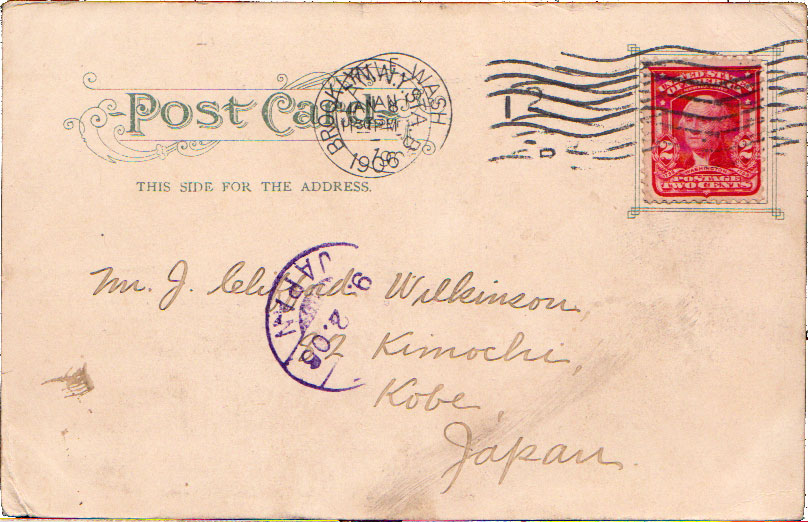 Post Card
THIS SIDE FOR THE ADDRESS.
BROOKLYN
WASH
JAN
PM
1906
UNITED STATES
2 2
WASHINGTON
POSTAGE
TWO CENTS
JAPAN
9. 2. 06
Mr. J. Clifford Wilkinson,
Kimochi,
Kobe,
Japan.